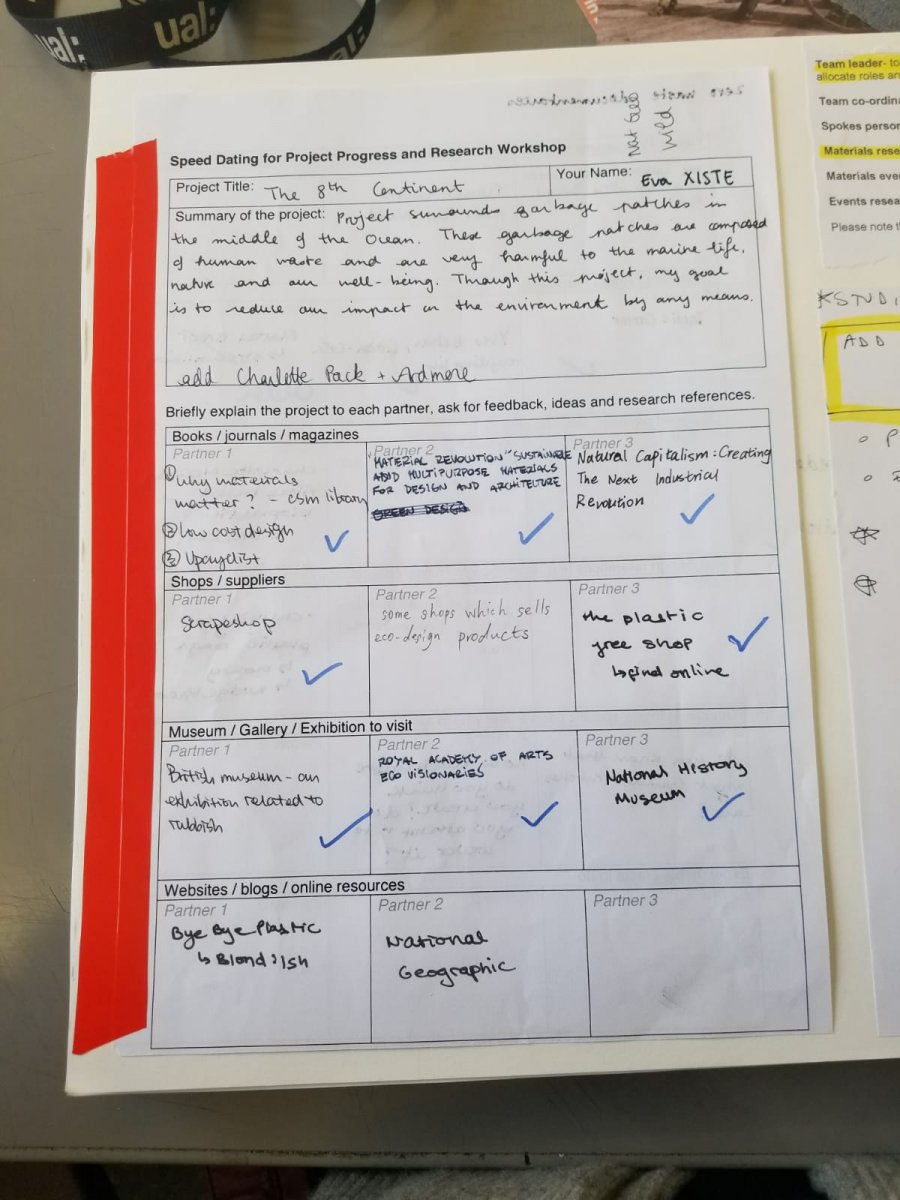 ual:
ual:
zero waste documentaries
Nat Geo
Wild
Speed Dating for Project Progress and Research Workshop
Project Title: The 8th Continent
Your Name: Eva XISTE
Summary of the project: Project surrounds garbage patches in
the middle of the Ocean. These garbage patches are composed
of human waste and are very harmful to the marine life,
nature and our well-being. Through this project, my goal
is to reduce our impact on the environment by any means.
add Charlotte Pack + Ardmore
Briefly explain the project to each partner, ask for feedback, ideas and research references.
Books / journals / magazines
Partner 1
① why materials
matter? - csm library
② low cost design
③ Upcyclist
Partner 2
MATERIAL REVOLUTION "SUSTAINABLE
AND MULTIPURPOSE MATERIALS
FOR DESIGN AND ARCHITECTURE
GREEN DESIGN
Partner 3
Natural Capitalism: Creating
The Next Industrial
Revoution
Shops / suppliers
Partner 1
Scrapeshop
Partner 2
some shops which sells
eco-design products
Partner 3
the plastic
free shop
↳ find online
Museum / Gallery / Exhibition to visit
Partner 1
British museum - an
exhibition related to
rubbish
Partner 2
ROYAL ACADEMY OF ARTS
ECO VISIONARIES
Partner 3
National History
Museum
Websites / blogs / online resources
Partner 1
Bye Bye Plastic
↳ Blond:ish
Partner 2
National
Geographic
Partner 3
Team leader- to
allocate roles an
Team co-ordina
Spokes person
Materials rese
Materials eve
Events resea
Please note th
STUDI
ADD